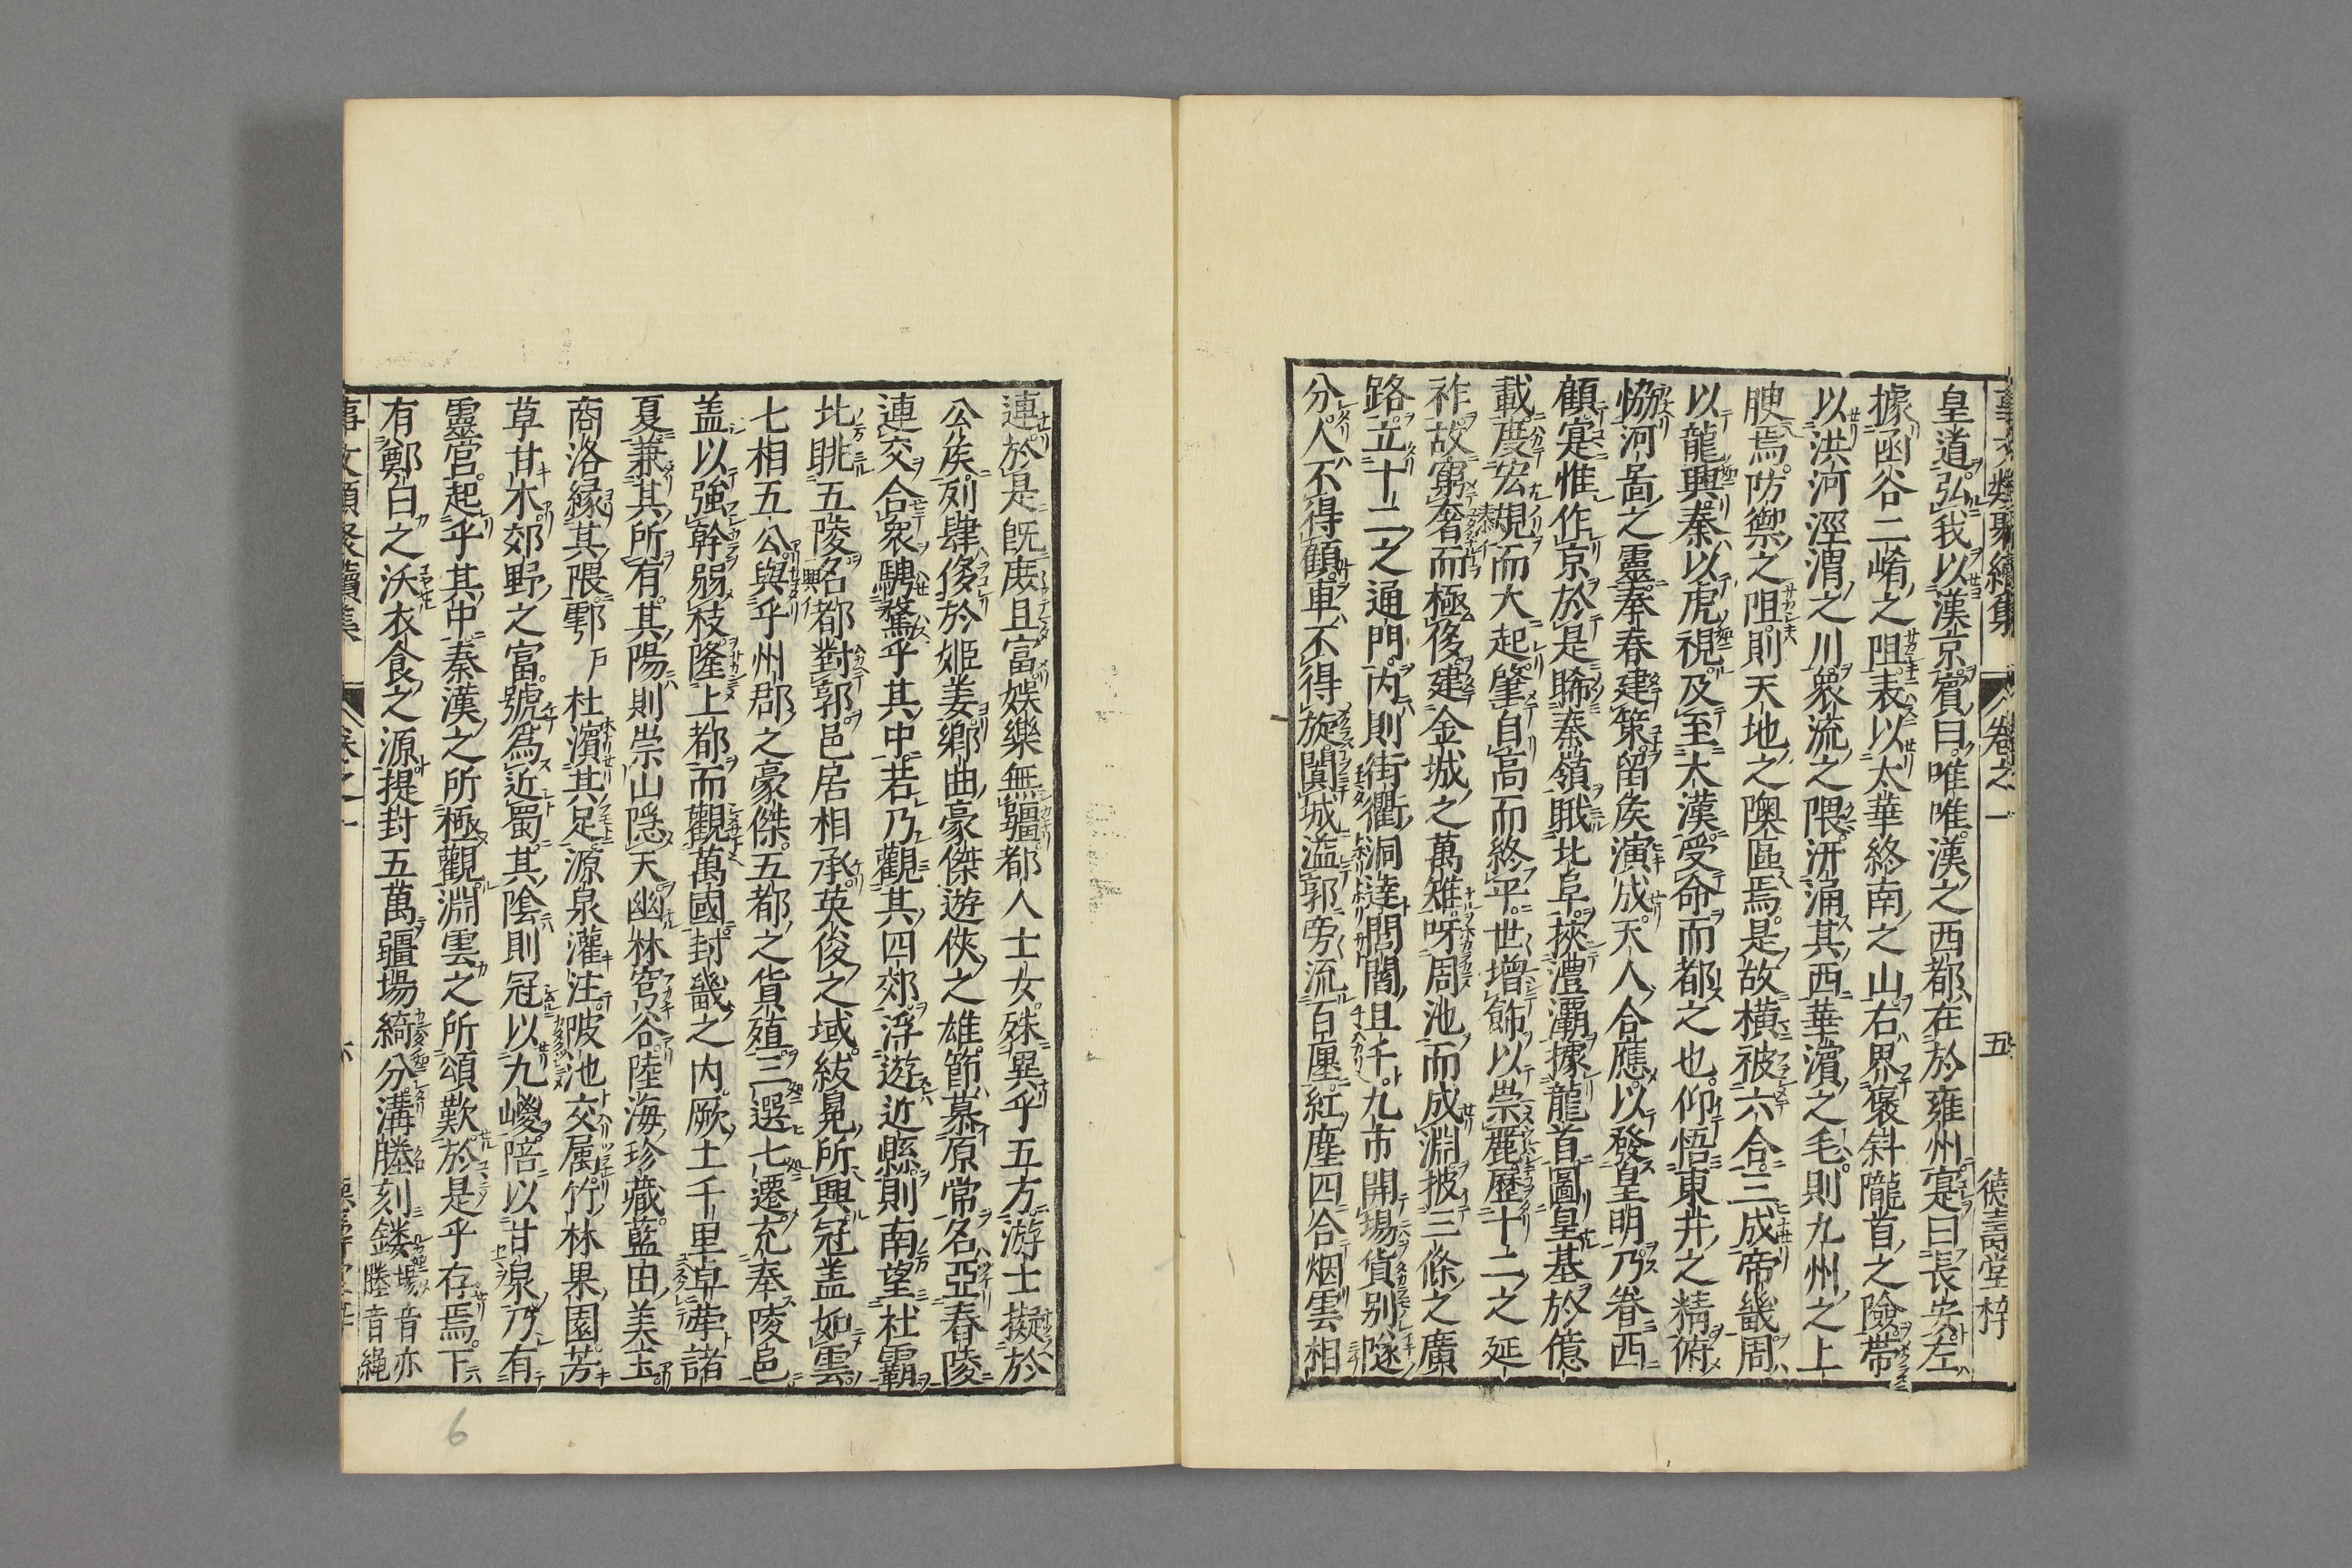 皇道弘我以漢京賔曰唯唯漢之西都在於雍州寔曰長安左
據函谷二崤之阻表以太華終南之山右界褒斜隴首之險帶
以洪河涇渭之川衆流之隈汧涌其西華濱之毛則九州之上
腴焉防禦之阻則天地之隩區焉是故横被六合三成帝畿周
以龍興秦以虎視及至大漢受命而都之也仰悟東井之精俯
恊河啚之靈奉春建策留矦演成天人合應以發皇明乃眷西
顧寔惟作京於是睎秦嶺睋北阜挾灃灞據龍首圖皇基於億
載度宏規而大起肇自髙而終平世增飾以崇麗歷十二之延
祚故窮奢而極侈建金城之萬雉呀周池而成淵披三條之廣
路立十二之通門内則街衢洞達閭閻且千九市開塲貨别隧
分人不得顧車不得旋闐城溢郭旁流百廛紅塵四合烟雲相
連於是既庻且富娛樂無疆都人士女殊異乎五方游士擬於
公矦列肆侈於姬姜鄉曲豪傑遊俠之雄節慕原常名亞春陵
連交合衆騁騖乎其中若乃觀其四郊浮遊近縣則南望杜霸
北眺五陵名都對郭邑居相承英俊之域紱冕所興冠盖如雲
七相五公與乎州郡之豪傑五都之貨殖三選七遷充奉陵邑
盖以強幹弱枝隆上都而觀萬國封畿之内厥土千里卓犖諸
夏兼其所有其陽則崇山隱天幽林穹谷陸海珍藏藍田美玉
商洛縁其隈鄠戸杜濱其足源泉灌注陂池交属竹林果園芳
草甘木郊野之富號爲近蜀其隂則冠以九嵕陪以甘泉乃有
靈宫起乎其中秦漢之所極觀淵雲之所頌歎於是乎存焉下
有鄭白之沃衣食之源提封五萬疆場綺分溝塍刻鏤場音亦塍音繩
事文類聚續集
卷之一
五
德壽堂梓
6